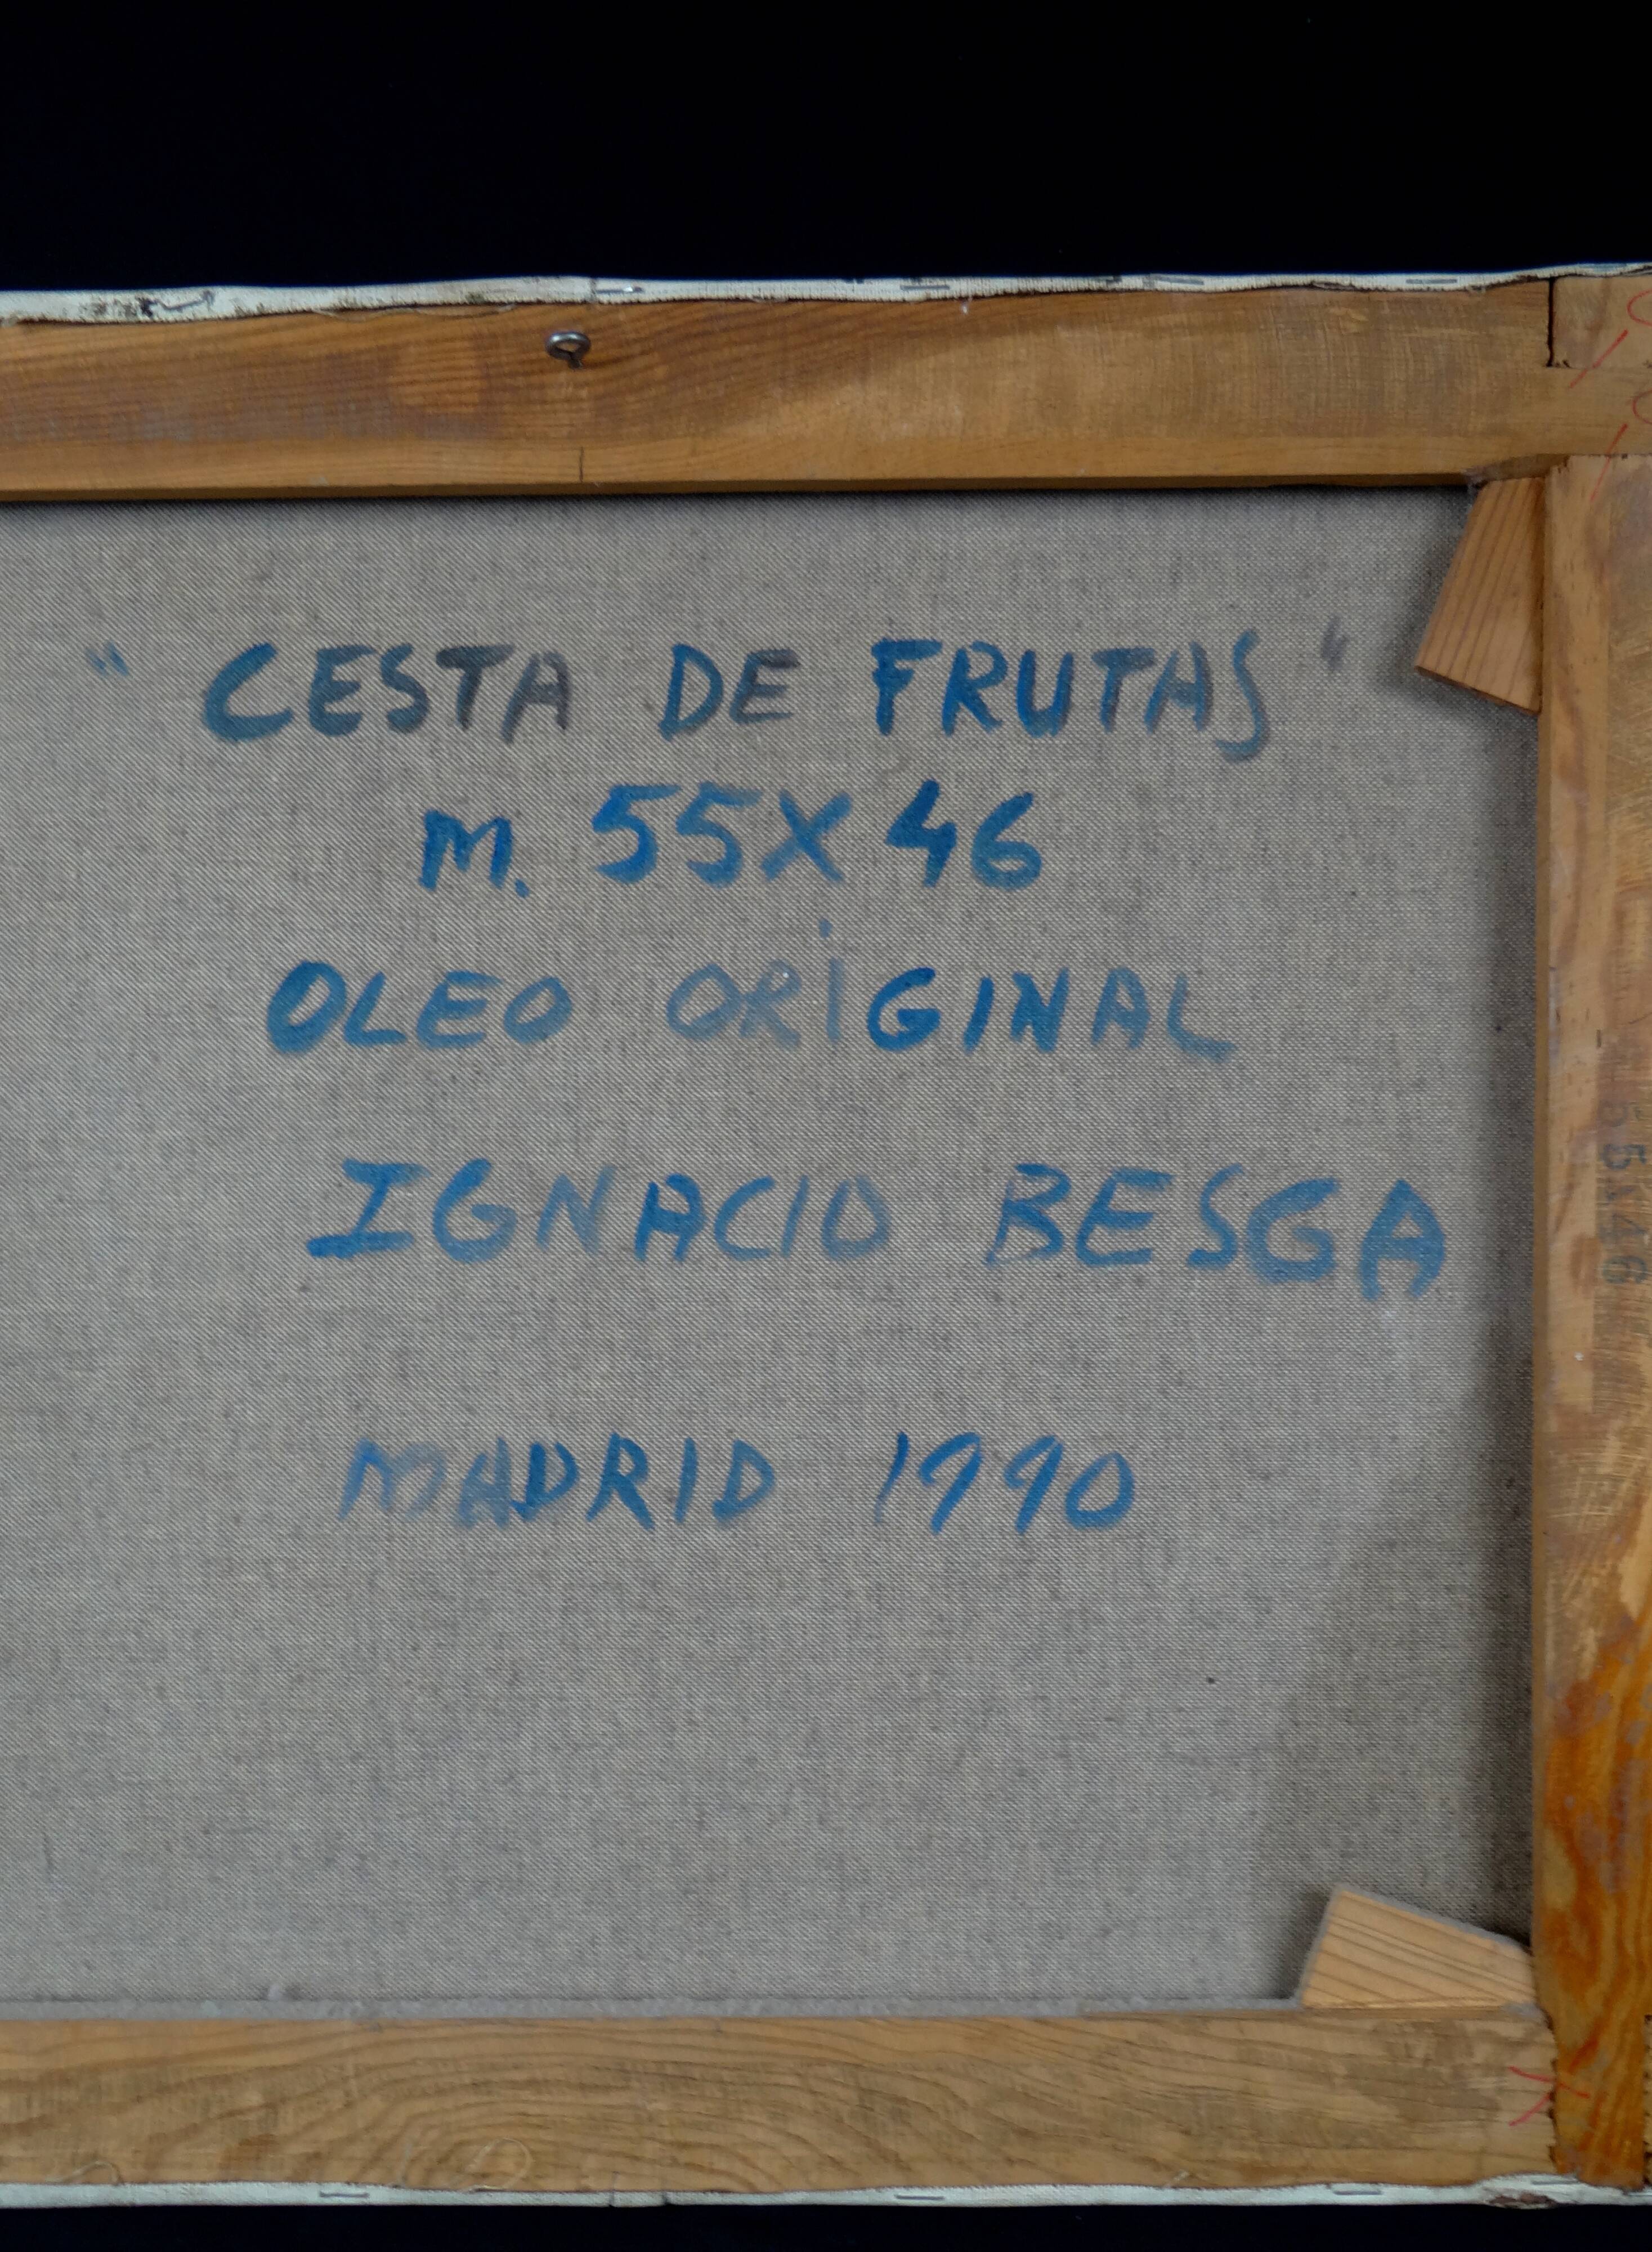 " CESTA DE FRUTAS "
M. 55X46
OLEO ORIGINAL
IGNACIO BESGA
MADRID 1990
55146